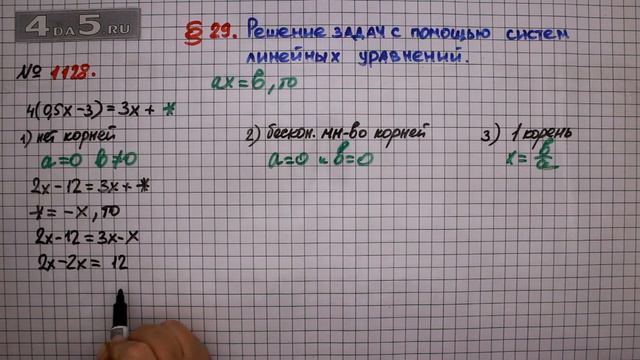 4DA5.RU
§ 29. Решение задач с помощью систем
линейных уравнений.
№ 1128.
ax = b, то
4(0,5x-3) = 3x + *
1) нет корней
a=0 b≠0
2x-12 = 3x + *
* = -x, то
2x-12 = 3x-x
2x-2x = 12
2) бескон. мн-во корней
a=0 и b=0
3) 1 корень
x = b/a